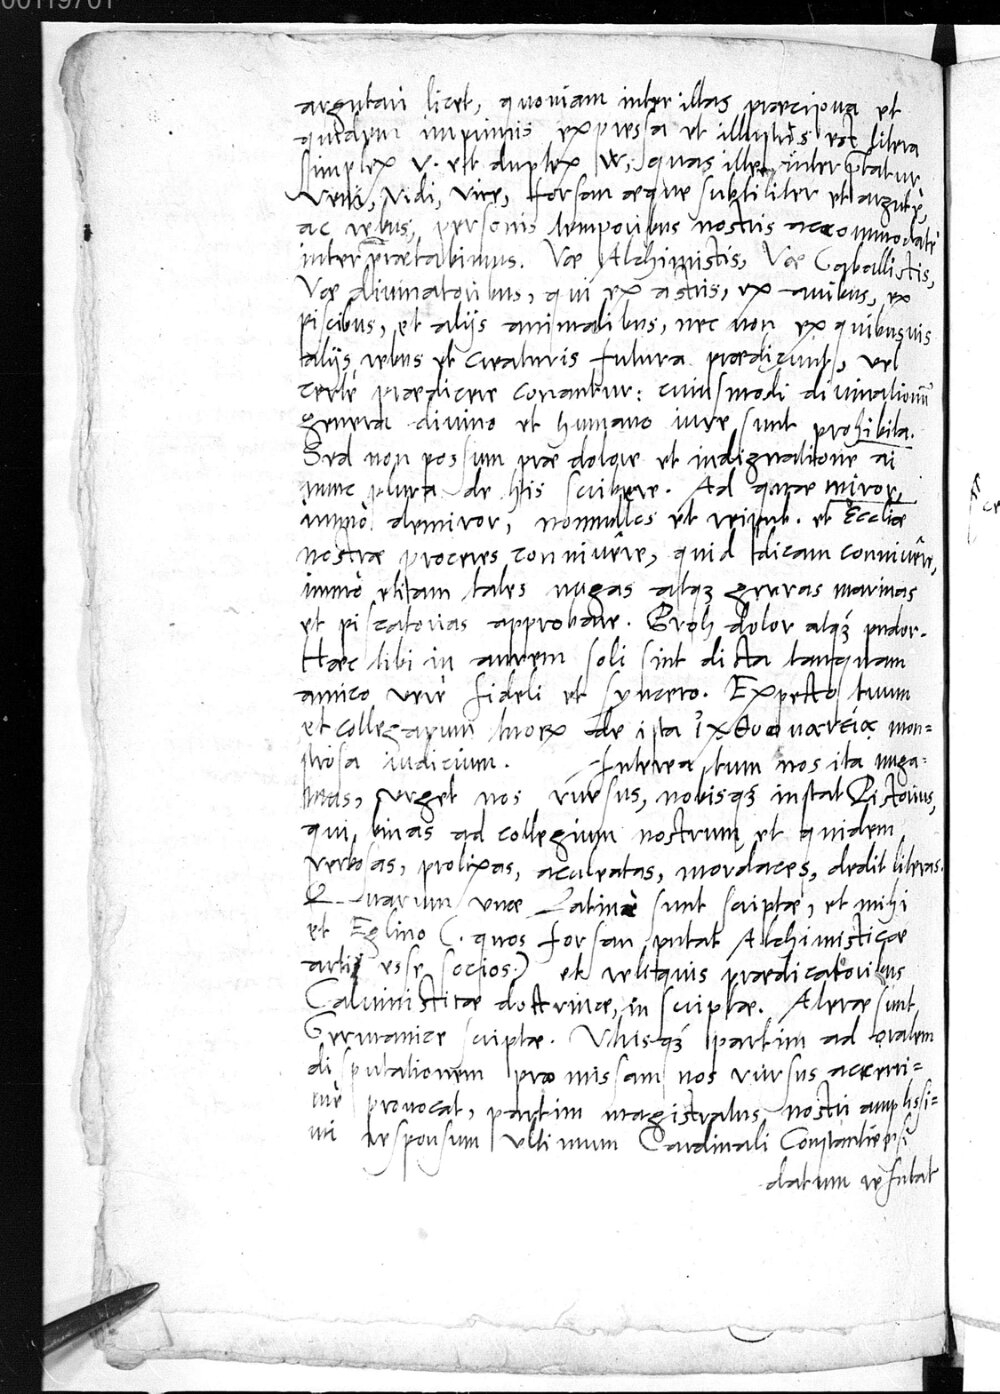 00119701
argutari licet, quoniam inter illas praecipua et
quidem imprimis expressa et illustris est litera
simplex V. et duplex W, quas ille interpretatur
Veni, Vidi, Vice, forsan aeque subtiliter et argutè,
ac rebus, personis temporibus nostris accommodatè
interpraetabimus. Vae Alchimistis, Vae Caballistis,
Vae divinatoribus, qui ex astris, ex avibus, ex
piscibus, et alijs animalibus, nec non ex quibusuis
alijs rebus et creaturis futura praedicunt, vel
certè praedicere conantur: cuiusmodi diuinationū
genera diuino et humano iure sunt prohibita.
Sed non possum prae dolore et indignatione
nunc plura de his scribere. Ad quae miror,
immò demiror, nonnullos et reipub. et Eccliae
nostrae proceres connivêre, quid dicam connivêre,
immò etiam tales nugas atqȝ gerras marinas
et piscatorias approbare. Proh dolor atqȝ pudor.
Haec tibi in aurem soli sint dicta tanquam
amico verè fideli et syncero. Expecto tuum
et collegarum tuorꝝ de ista ἰχθυομαντείᾳ mon=
strosa iudicium. Interea tum nos ita nuga=
mus, urget nos rursus, nobisqȝ instat Pistorius,
qui binas ad collegium nostrum et quidem
verbosas, prolixas, aculeatas, mordaces, dedit literas.
Quarum unae Latinè sunt scriptae, et mihi
et Eglino (. quos forsan putat Alchimisticae
artis esse socios.) et reliquis praedicatoribus
Caluinisticae doctrinae, inscriptae. Alterae sunt
Germanicè scriptae. Utrisqȝ partim ad oralem
disputationem praemissam nos rursus acerri=
mè prouocat, partim magistratus nostri amplissi=
mi responsum ultimum Cardinali Constantiensi
datum refutat